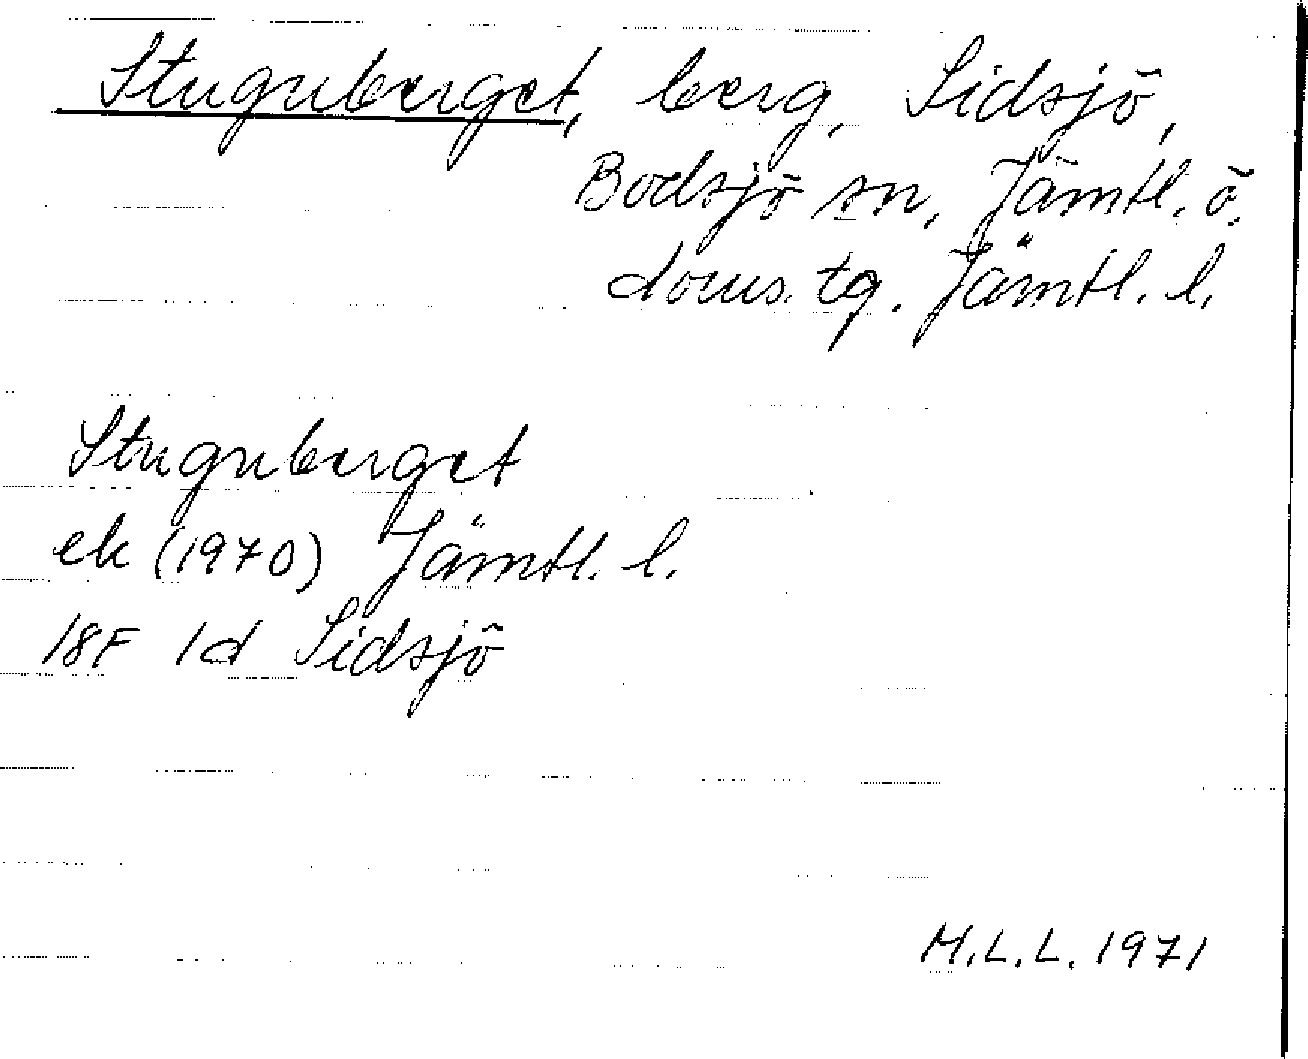 Stuguberget, berg, Sidsjö,
Bodsjö sn, Jämtl. ö.
doms. tg. Jämtl. l.
Stuguberget
ek (1970) Jämtl. l.
18F 1d Sidsjö
M.L.L. 1971